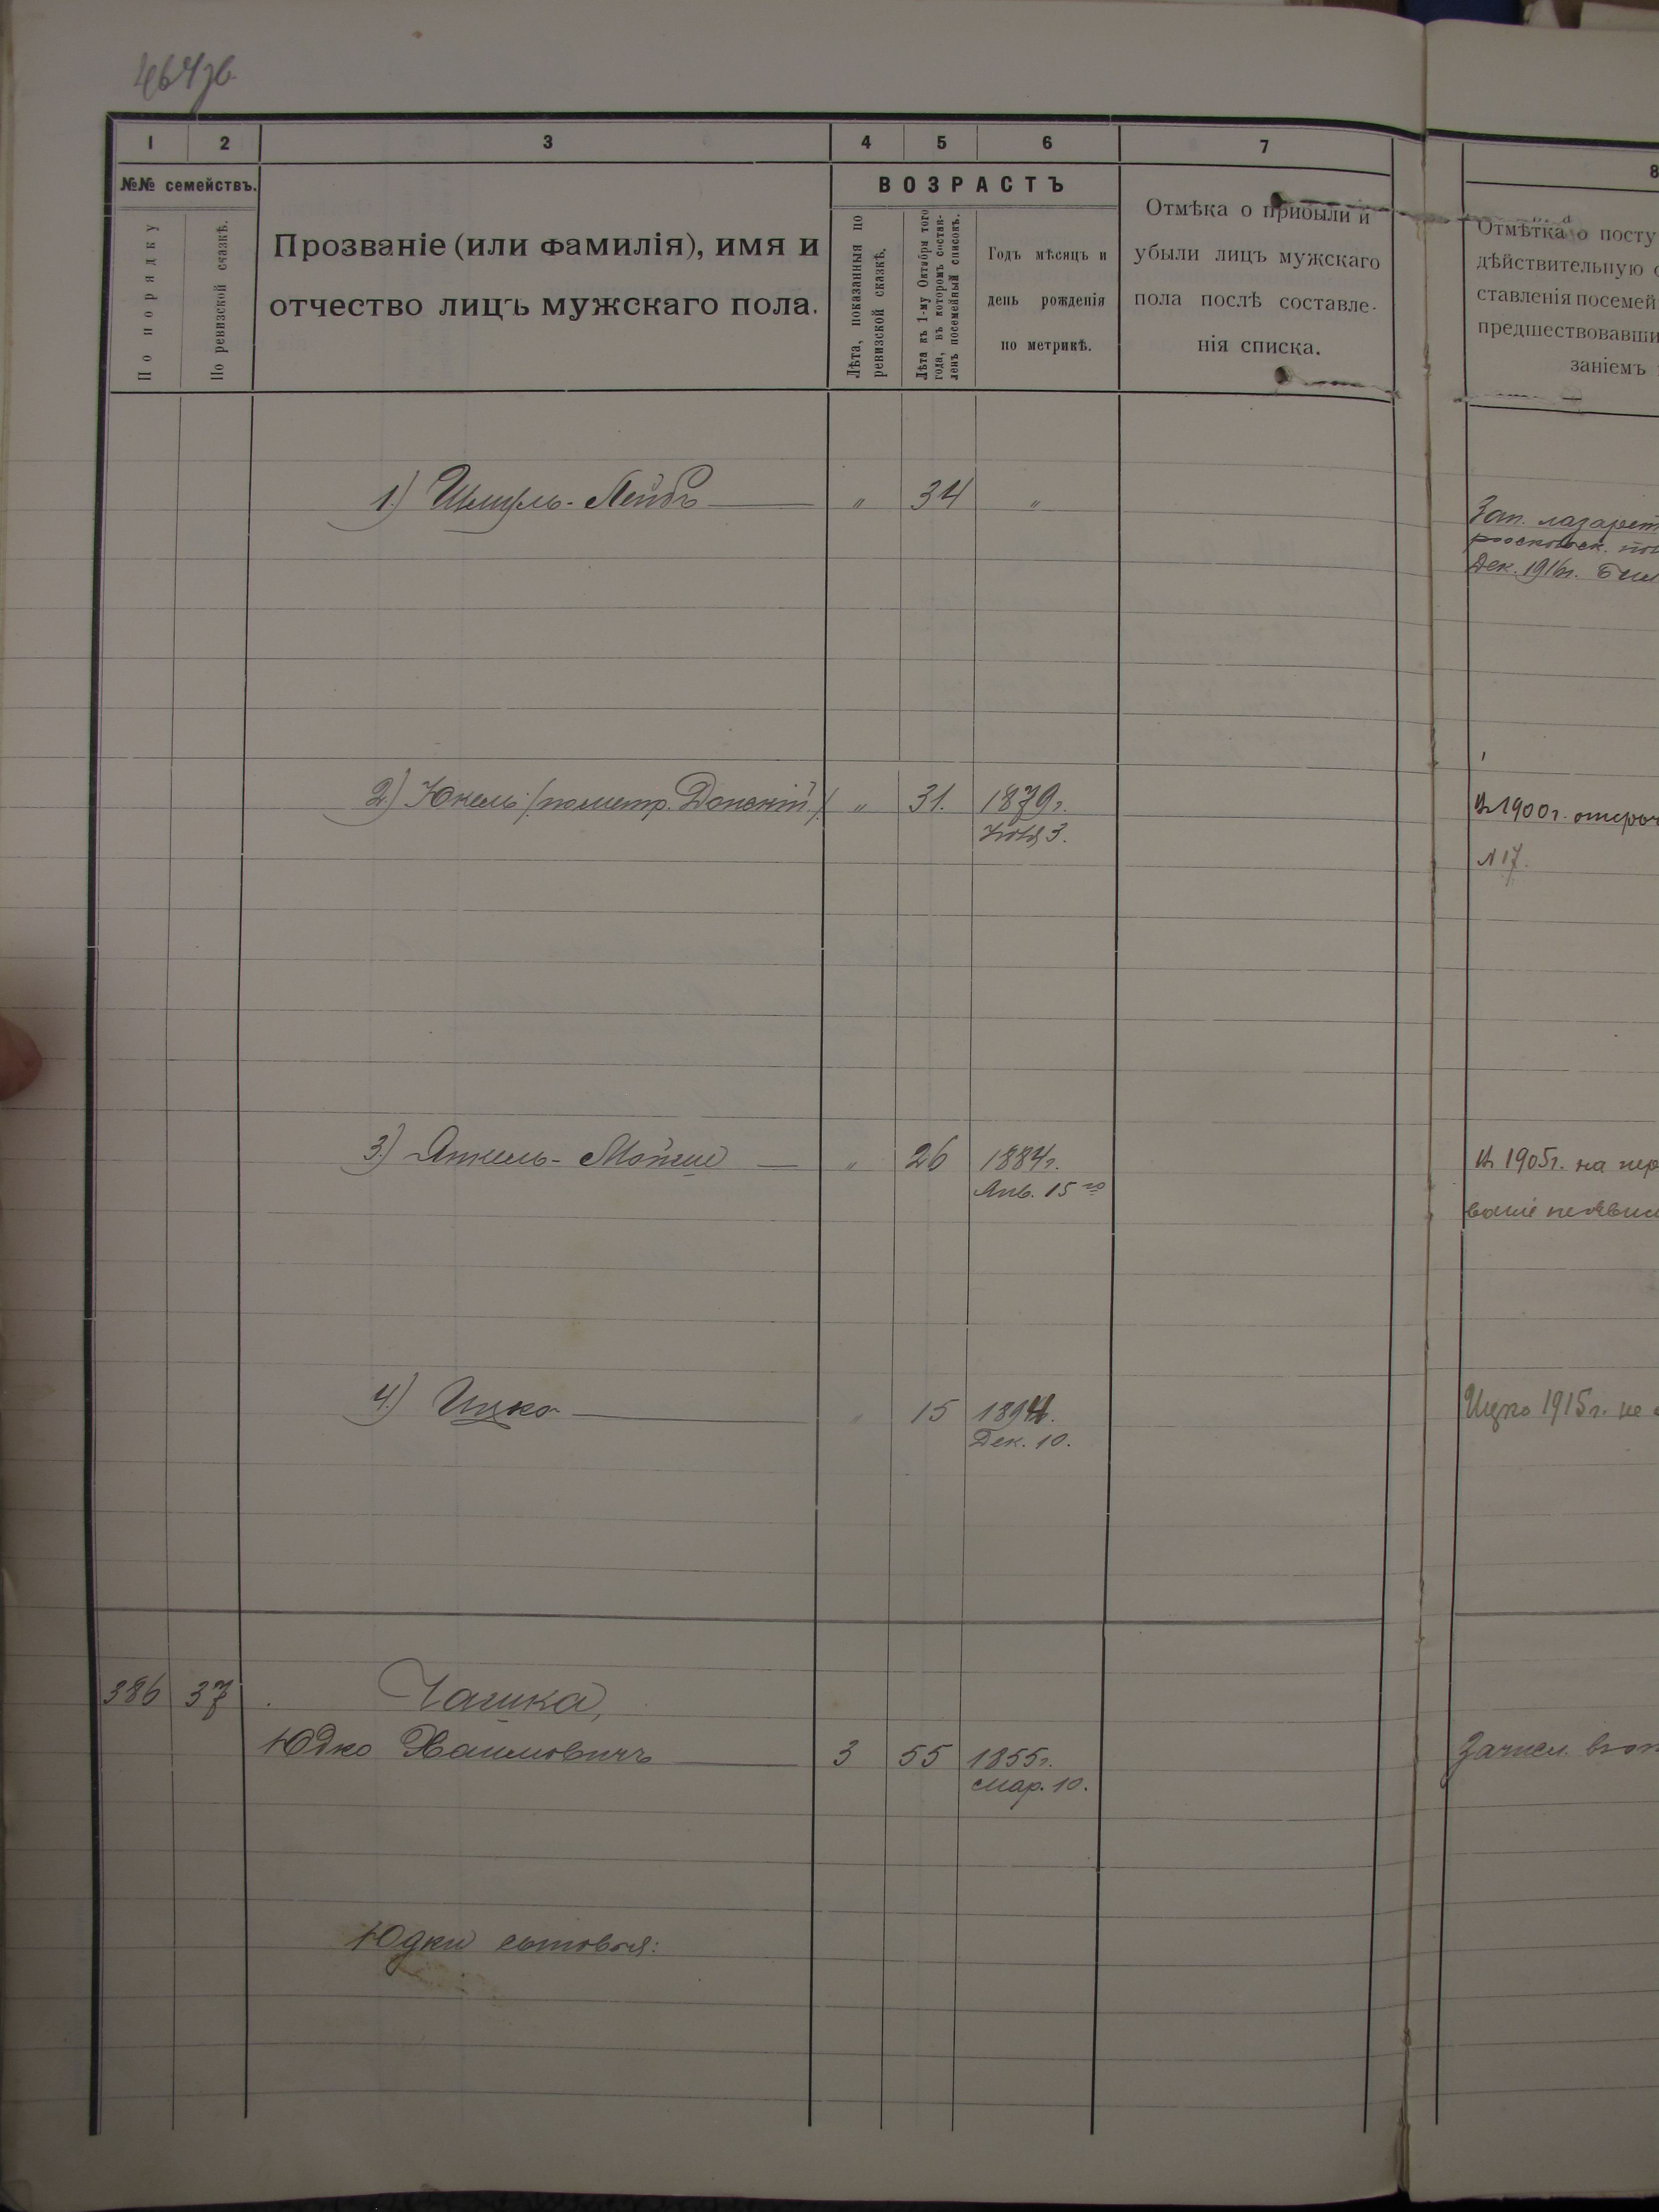 464
1 2 3 4 5 6 7 8
№№ семействъ.
По порядку
По ревизской сказкѣ.
Прозваніе (или фамилія), имя и
отчество лицъ мужскаго пола.
ВОЗРАСТЪ
Лѣта, показанныя по
ревизской сказкѣ.
Лѣта къ 1-му Октября того
года, въ которомъ состав-
ленъ посемейный списокъ.
Годъ мѣсяцъ и
день рожденія
по метрикѣ.
Отмѣка о прибыли и
убыли лицъ мужскаго
пола послѣ составле-
нія списка.
Отмѣтка о посту
дѣйствительную с
ставленія посемей
предшествовавши
заніемъ
1.) Шмуль-Лейбъ " 34 "
Зап. лазарет
Дек. 1916г.
2) Юкель /: по метр. Донскій :/ " 31. 1879г.
3.
В 1900г. отсроч
№ 17.
3.) Янкель-Мойше " 26 1884г.
Янв. 15го
В 1905г. на
4.) Ицко " 15 1894.
Дек. 10.
Ицко 1915г. не
386 37 Чашка,
Юдко Хаимовичъ 3 55 1855г.
Мар. 10.
Зачисл.
Юдки сыновья: